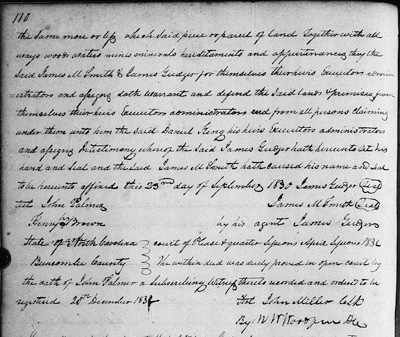 110
the same more or less which said piece or parcel of land together with all
ways woods waters mines minerals hereditaments and appurtenances they the
Said James M Smith & James Gudger for themselves their heirs Executors admin
istrators and assigns doth warrant and defend the Said land & premises from
themselves their heirs Executors administrators and from all persons claiming
under them unto him the Said Daniel King his heirs Executors administrators
and assigns In testimony whereof the Said James Gudger hath hereunto set his
hand and Seal and the Said James M Smith hath caused his name and seal
to be hereunto affixed this 23rd day of September 1830 James Gudger Seal
test John Palmer James M Smith Seal
Henry Brown by his agent James Gudger
State of North Carolina court of Pleas & quarter Sessions April Sessions 1831
Buncombe County The within deed was duly proved in open court by
the oath of John Palmer a Subscribing Witness thereto recorded and ordered to be
registered 20th December 183
Test John Miller Clk
By